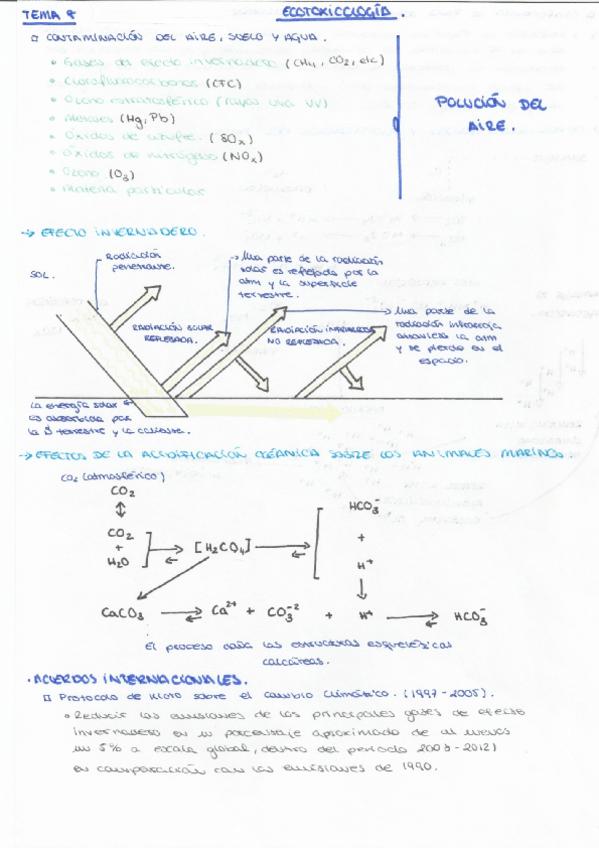 TEMA 8
ECOTOXICOLOGÍA.
□ CONTAMINACIÓN DEL AIRE, SUELO Y AGUA.
• Gases de efecto invernadero (CH4, CO2, etc)
• Clorofluorocarbonos (CFC)
• Ozono estratosférico (rayos UV)
• Metales (Hg, Pb)
• Óxidos de azufre (SOx)
• Óxidos de nitrógeno (NOx)
• Ozono (O3)
• Materia particular
POLUCIÓN DEL
AIRE.
→ EFECTO INVERNADERO.
SOL.
Radiación
penetrante.
→ Una parte de la radiación
solar es reflejada por la
atm y la superficie
terrestre.
RADIACIÓN SOLAR
REFLEJADA.
RADIACIÓN INFRARROJA
NO REFLEJADA.
→ Una parte de la
radiación infrarroja
atraviesa la atm
y se pierde en el
espacio.
La energía solar
es absorbida por
la S terrestre y la calienta.
→ EFECTOS DE LA ACIDIFICACIÓN OCEÁNICA SOBRE LOS ANIMALES MARINOS
CO2 (atmosférico)
CO2
CO2
+
H2O
[H2CO4]
HCO3-
+
H+
CaCO3 Ca2+ + CO3-2 + H+ HCO3-
El proceso daña las estructuras esqueléticas
calcáreas.
· ACUERDOS INTERNACIONALES.
□ Protocolo de Kioto sobre el cambio climático. (1997-2005).
• Reducir las emisiones de los principales gases de efecto
invernadero en un porcentaje aproximado de al menos
un 5% a escala global, dentro del periodo 2008-2012)
en comparación con las emisiones de 1990.